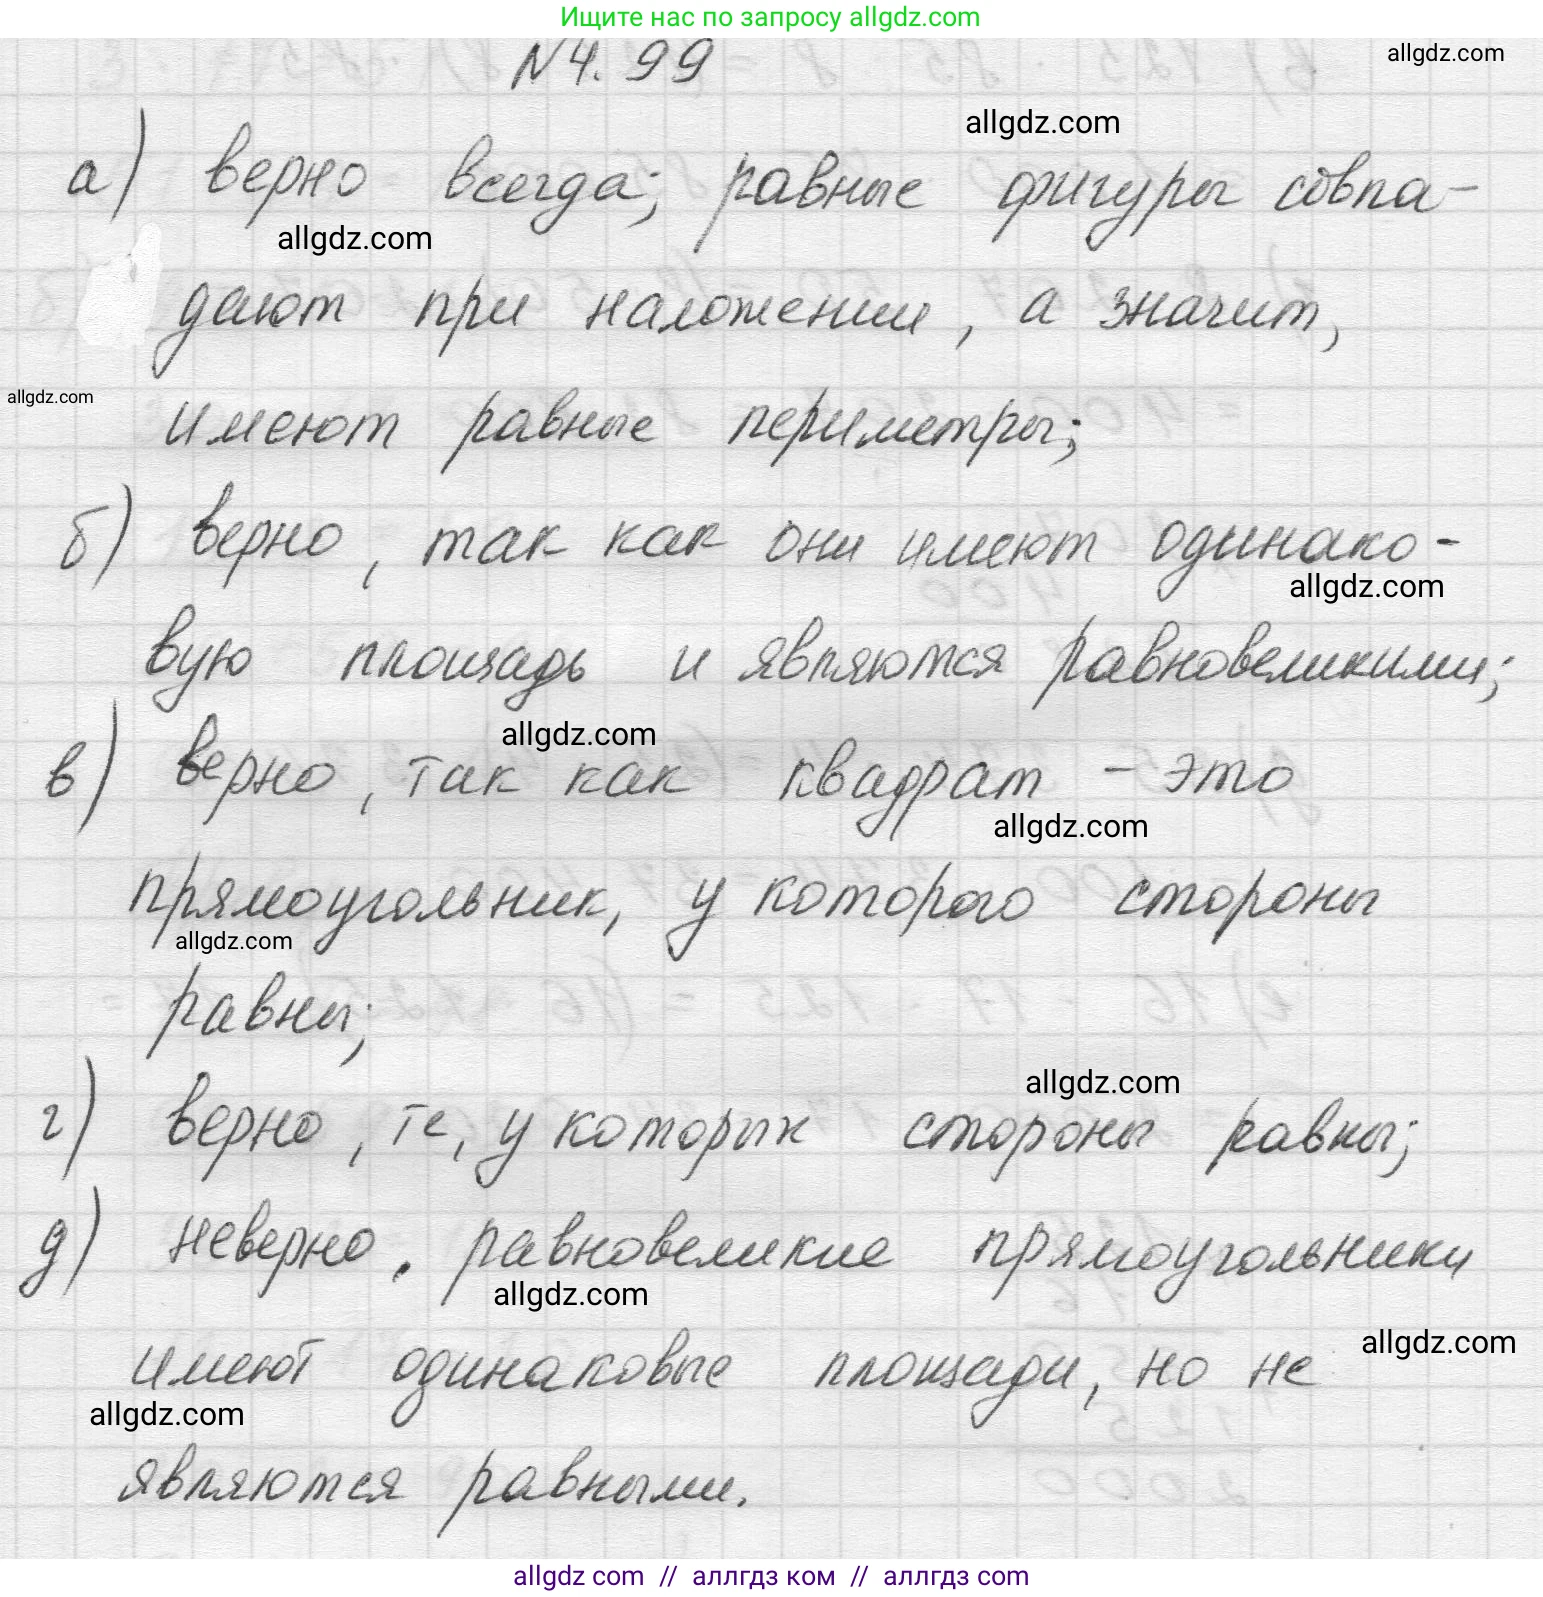 Ищите нас по запросу allgdz.com
№4.99
allgdz.com
allgdz.com
а) верно всегда; равные фигуры совпа-
allgdz.com
дают при наложении, а значит,
allgdz.com
имеют равные периметры;
б) верно, так как они имеют одинако-
allgdz.com
вую площадь и являются равновеликими;
allgdz.com
в) верно, так как квадрат - это
allgdz.com
прямоугольник, у которого стороны
allgdz.com
равны;
allgdz.com
г) верно, те, у которых стороны равны;
д) неверно. равновеликие прямоугольники
allgdz.com
allgdz.com
имеют одинаковые площади, но не
allgdz.com
являются равными.
allgdz com // аллгдз ком // аллгдз com